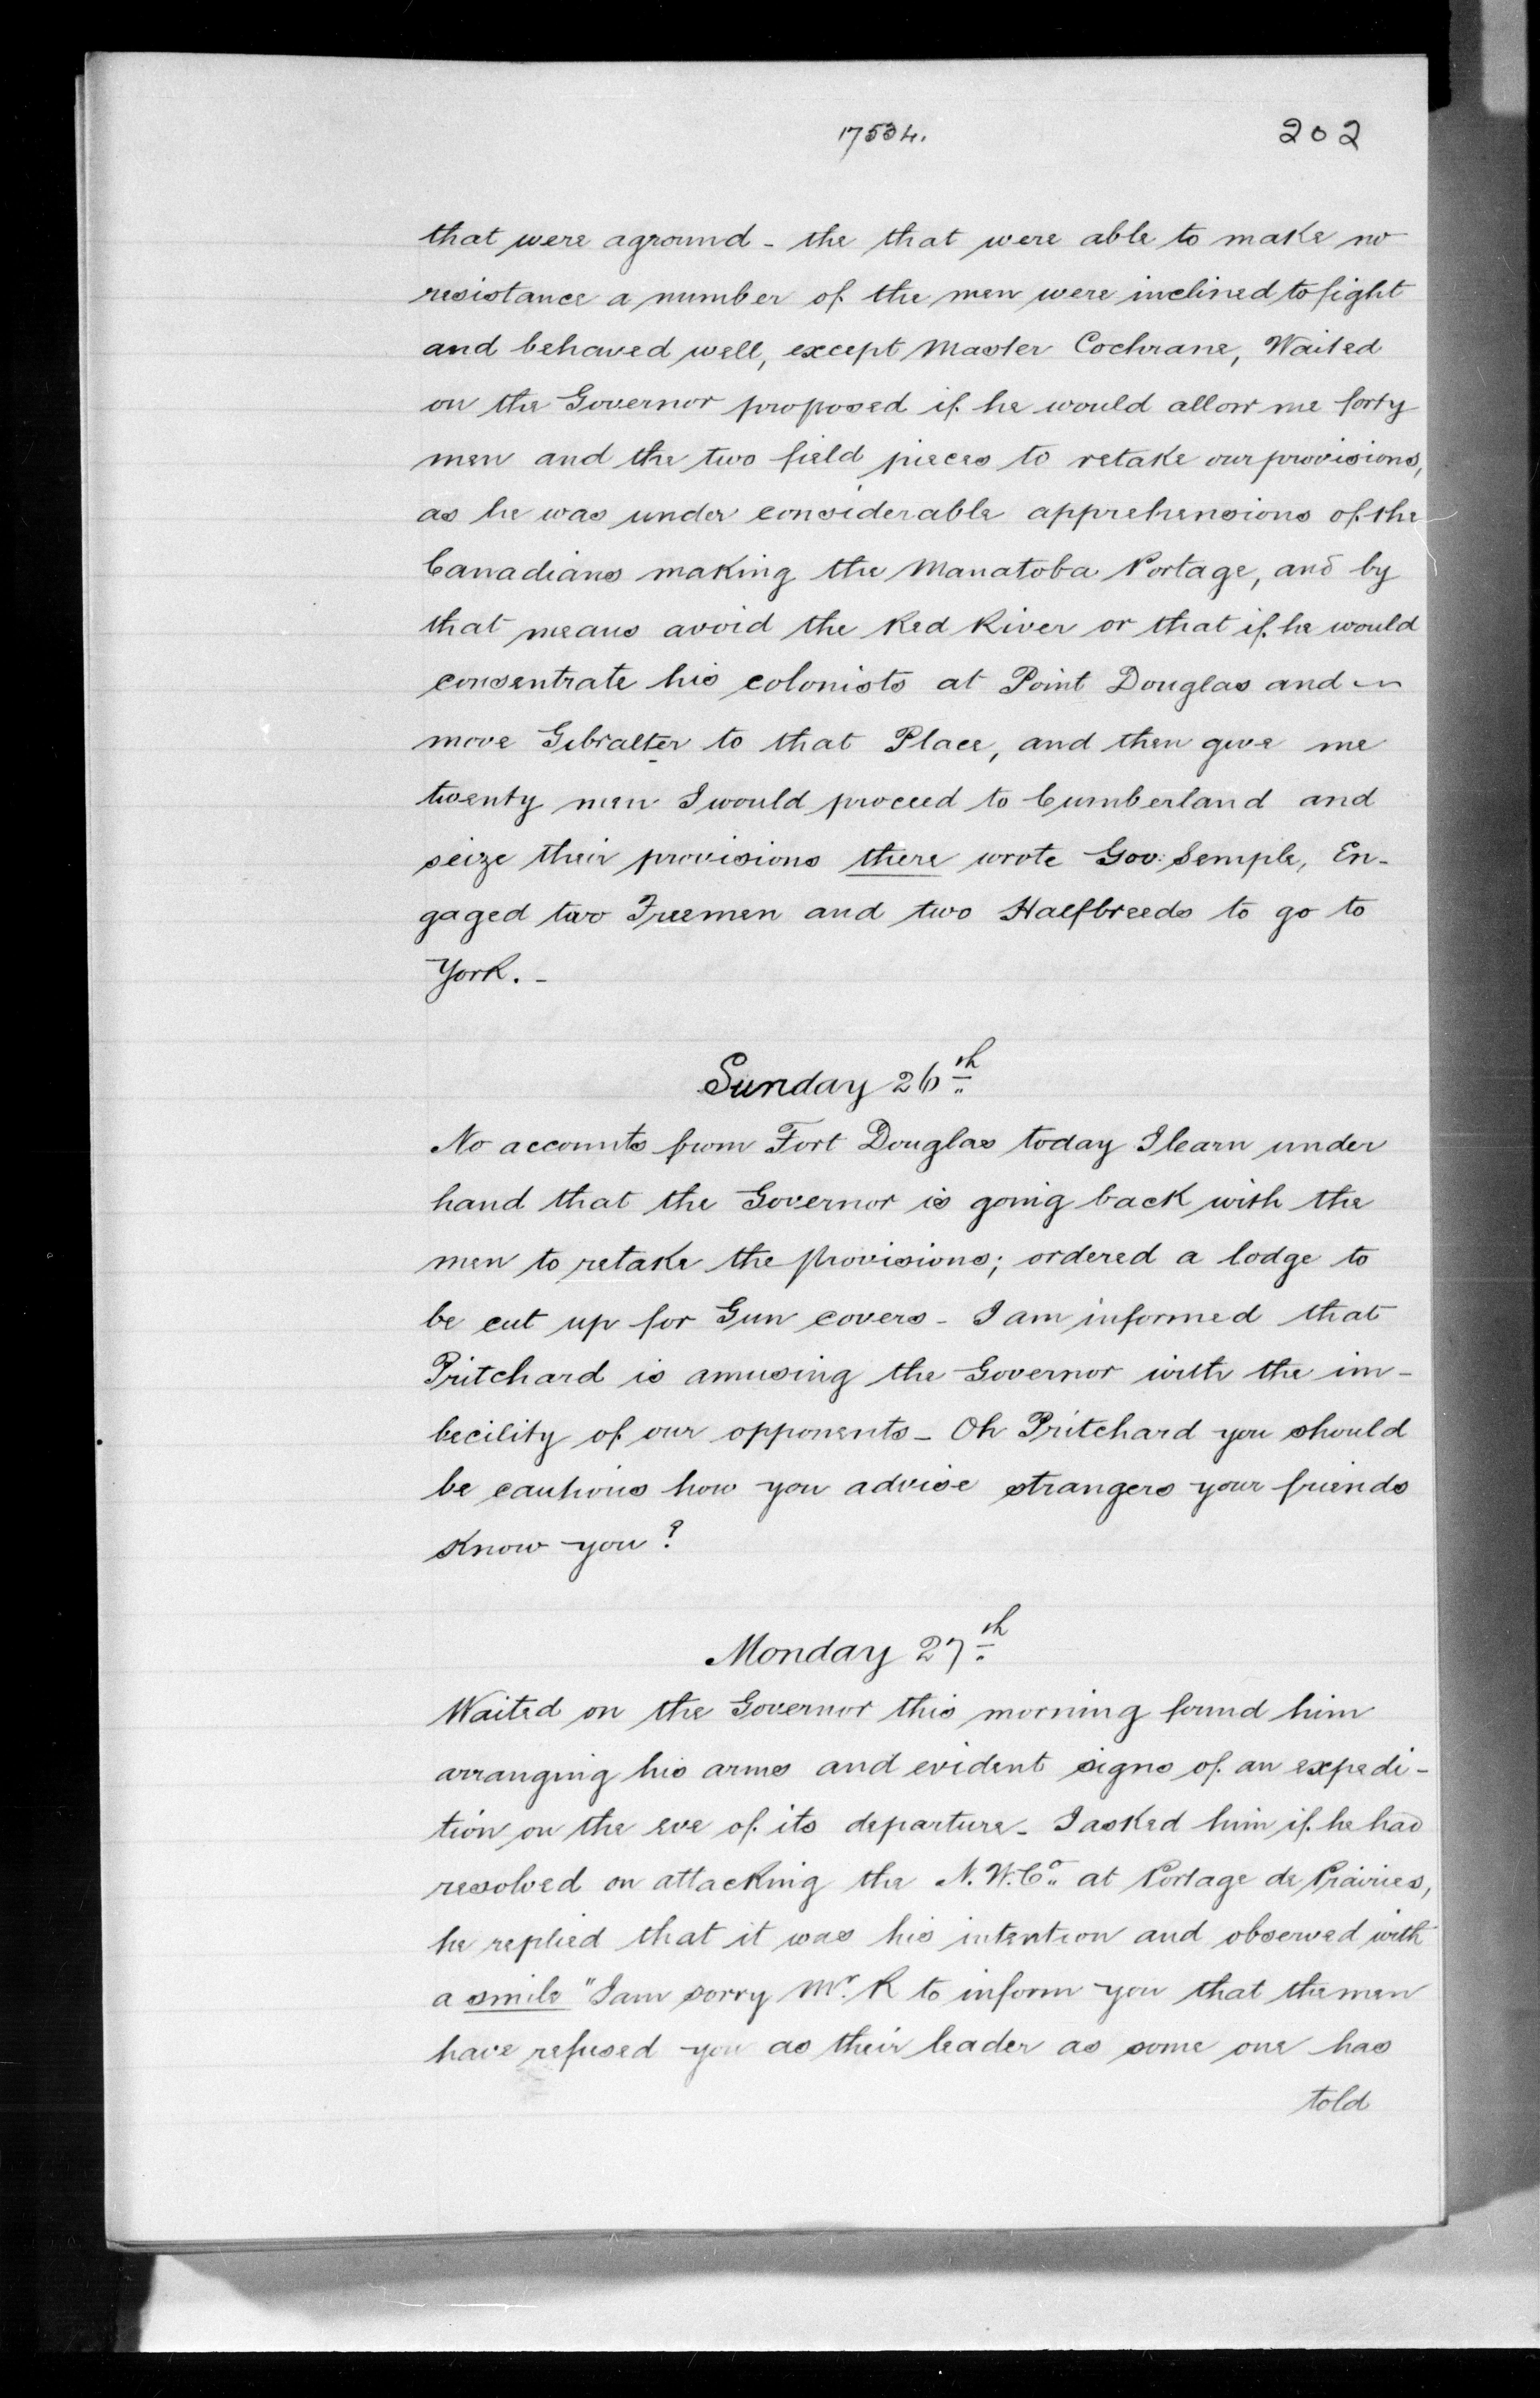 17534.
202
that were aground - the that were able to make no
resistance a number of the men were inclined to fight
and behaved well, except Master Cochrane, Waited
on the Governor proposed if he would allow me forty
men and the two field pieces to retake our provisions,
as he was under considerable apprehensions of the
Canadians making the Manatoba Portage, and by
that means avoid the Red River or that if he would
consentrate his colonists at Point Douglas and
move Gibralter to that Place, and then give me
twenty men I would proceed to Cumberland and
seize their provisions there wrote Gov: Semple, En-
gaged two Freemen and two Halfbreeds to go to
York. -
Sunday 26th
No accounts from Fort Douglas today I learn under
hand that the Governor is going back with the
men to retake the provisions; ordered a lodge to
be cut up for Gun covers - I am informed that
Pritchard is amusing the Governor with the im-
becility of our opponents - Oh Pritchard you should
be cautious how you advise strangers your friends
know you?
Monday 27th
Waited on the Governor this morning found him
arranging his arms and evident signs of an expedi-
tion on the eve of its departure - I asked him if he had
resolved on attacking the N.W.Co. at Portage de Prairies,
he replied that it was his intention and observed with
a smile "I am sorry Mr. R to inform you that the men
have refused you as their leader as some one has
told